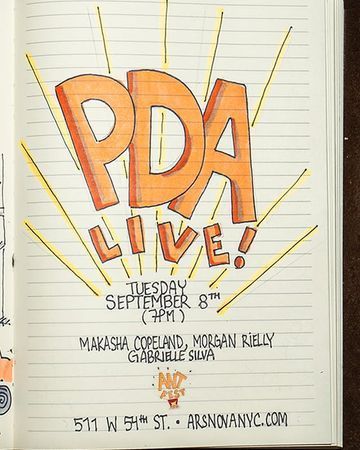 PDA
LIVE!
TUESDAY
SEPTEMBER 8TH
(7PM)
MAKASHA COPELAND, MORGAN RIELLY
GABRIELLE SILVA
ANT
FEST
511 W 54TH ST. • ARSNOVANYC.COM